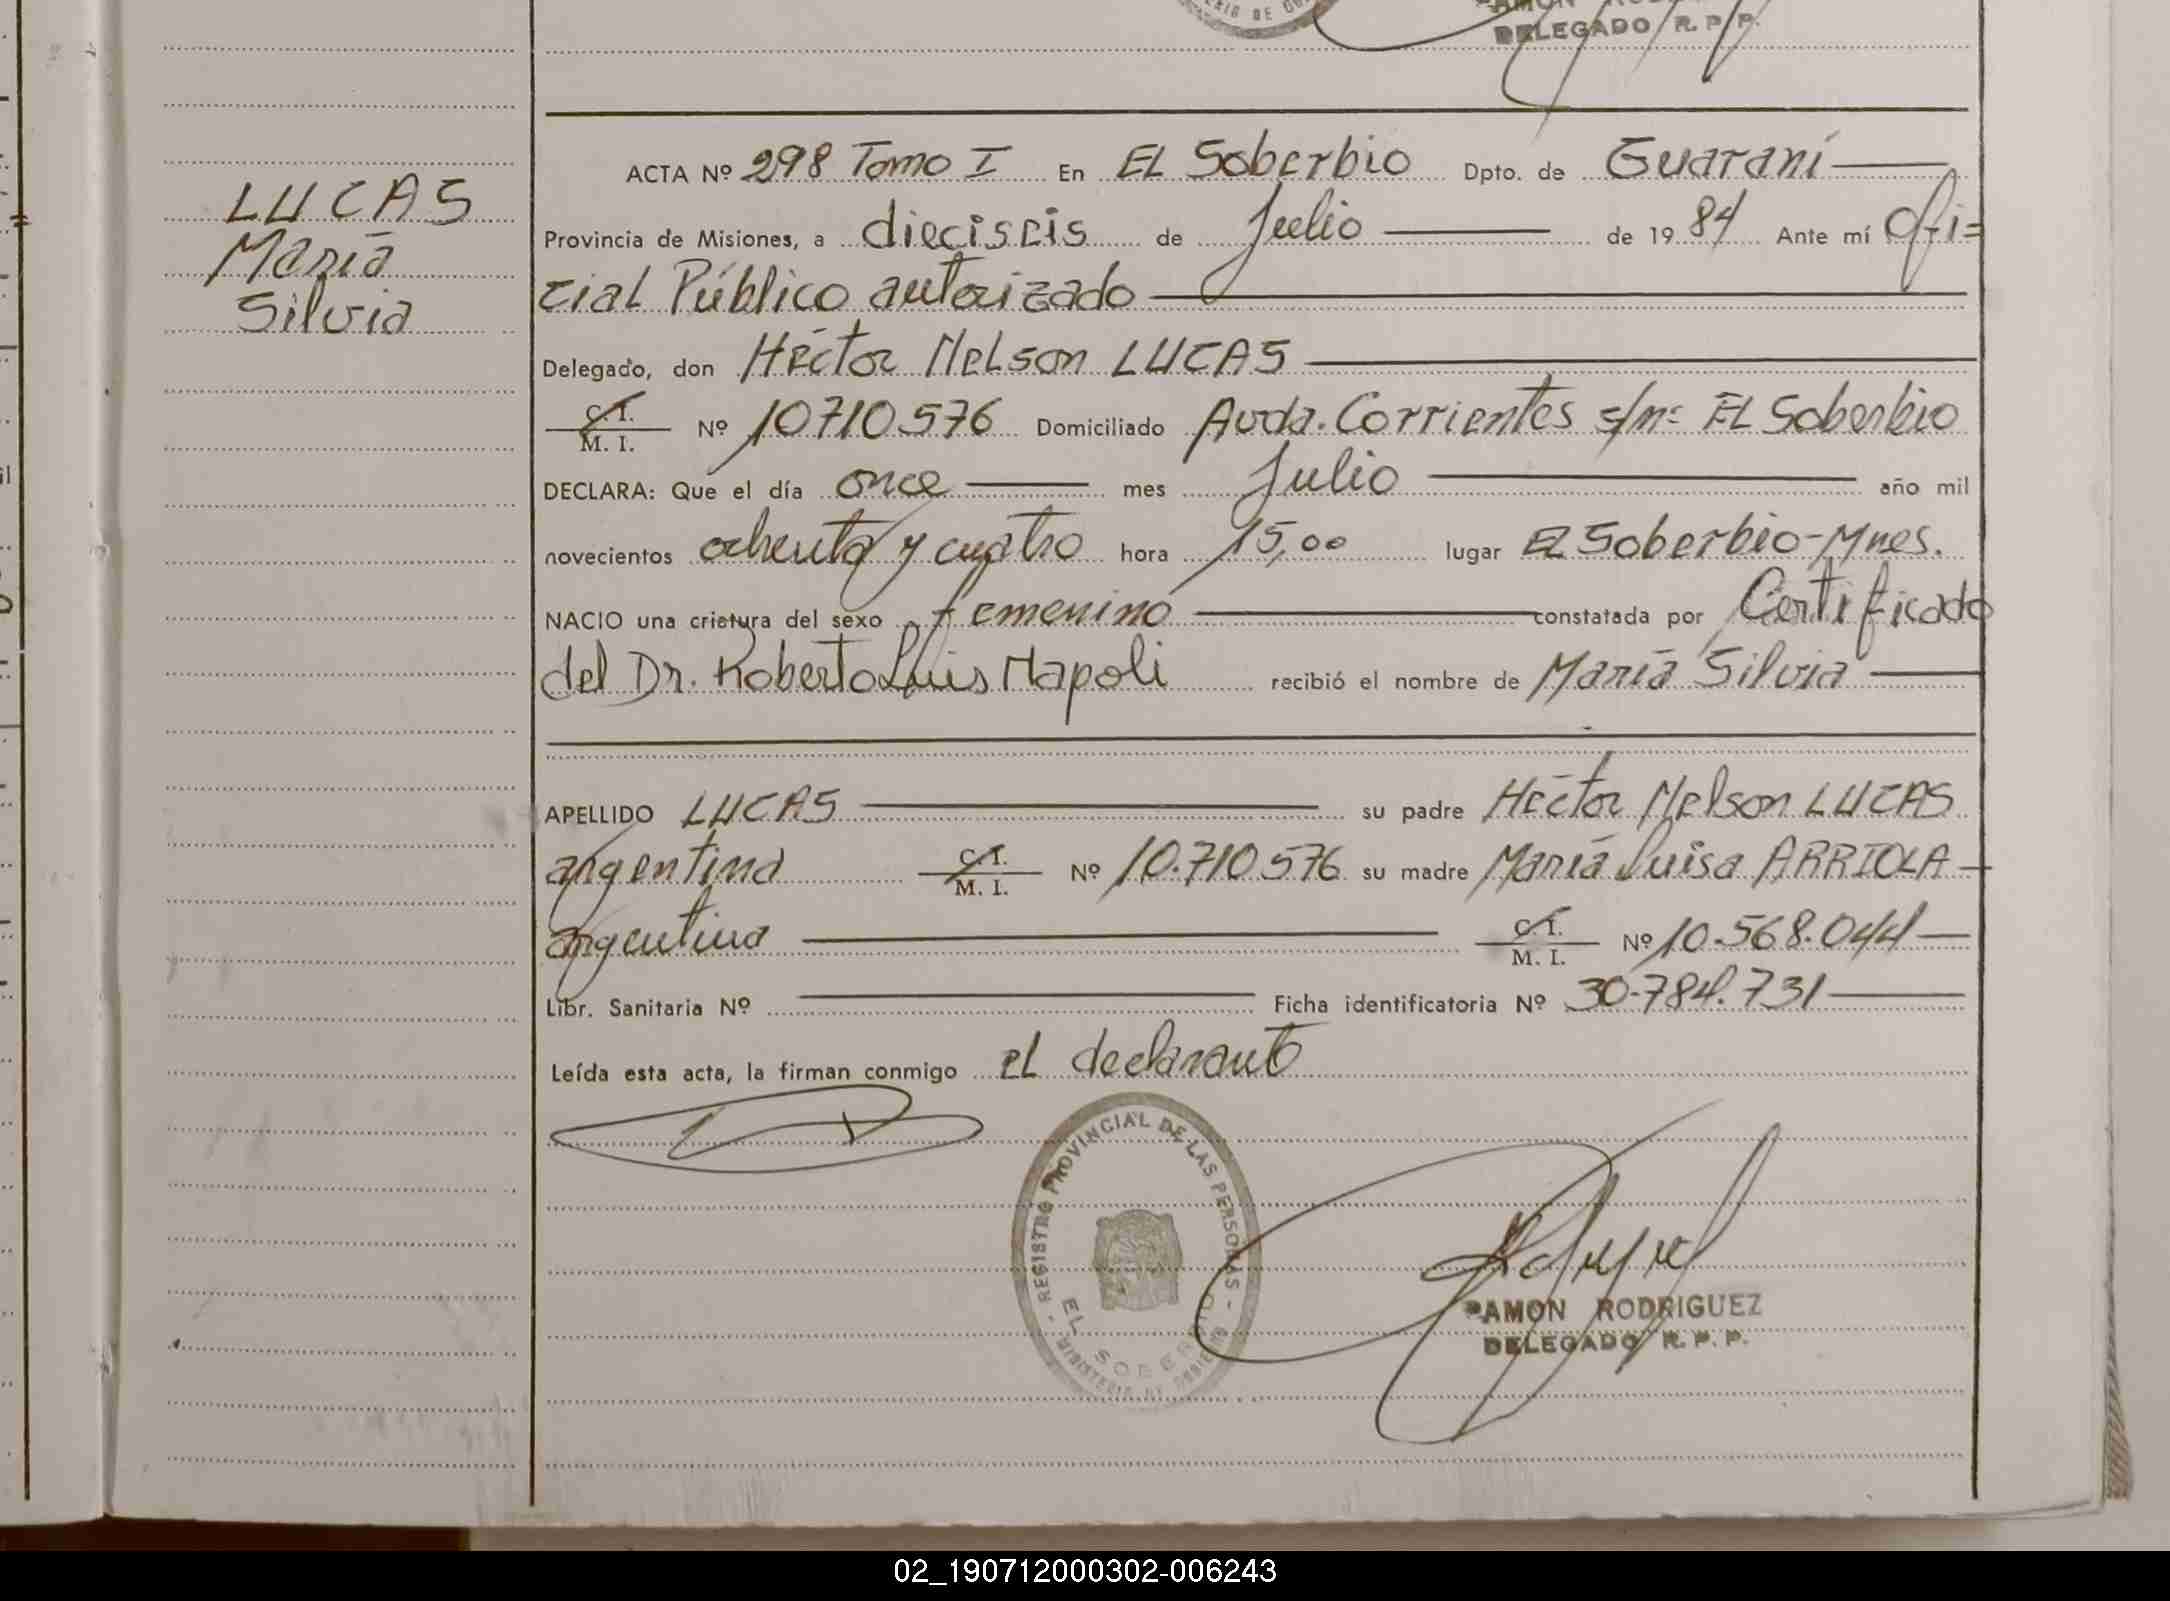 DELEGADO R. P. P.
LUCAS
María
Silvia
ACTA Nº 298 Tomo I En EL Soberbio Dpto. de Guaraní
Provincia de Misiones, a dieciseis de Julio de 19 84 Ante mí Ofi=
cial Público autorizado
Delegado, don Héctor Nelson LUCAS
C. I. M. I. Nº 10710.576 Domiciliado Avda. Corrientes s/nº EL Soberbio
DECLARA: Que el día once mes Julio año mil
novecientos ochenta y cuatro hora 15,00 lugar EL Soberbio-Mnes.
NACIO una criatura del sexo femenino constatada por Certificado
del Dr. Roberto Luis Napoli recibió el nombre de María Silvia
APELLIDO LUCAS su padre Héctor Nelson LUCAS
argentina C. I. M. I. Nº 10.710.576 su madre María Luisa ARRIOLA
argentina C. I. M. I. Nº 10.568.044
Libr. Sanitaria Nº Ficha identificatoria Nº 30.784.731
Leída esta acta, la firman conmigo el declarante
- REGISTRO PROVINCIAL DE LAS PERSONAS -
EL SOBERBIO
MINISTERIO DE GOBIERNO
RAMON RODRIGUEZ
DELEGADO R. P. P.
02_190712000302-006243